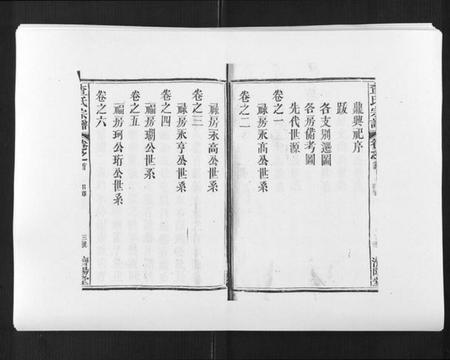 鼎興祀序
跋
各支別遷圖
各房備考圖
先代世源
卷之一
祿房永高公世系
卷之二
祿房永高公世系
卷之三
祿房永亨公世系
卷之四
福房珊公世系
卷之五
福房珂公珩公世系
卷之六
氏宗譜
卷之首
三